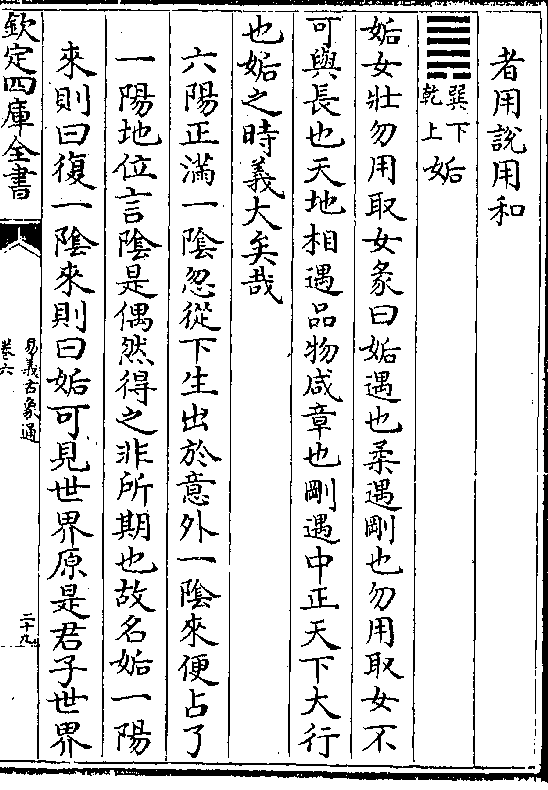 者用說用和
䷫巽下乾上姤
姤女壯勿用取女彖曰姤遇也柔遇剛也勿用取女不
可與長也天地相遇品物咸章也剛遇中正天下大行
也姤之時義大矣哉
六陽正滿一陰忽從下生出於意外一陰來便占了
一陽地位言陰是偶然得之非所期也故名姤一陽
來則曰復一陰來則曰姤可見世界原是君子世界
欽定四庫全書
易義古象通
卷六
二十九